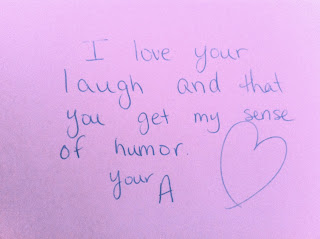 I love your
laugh and that
you get my sense
of humor.
your A